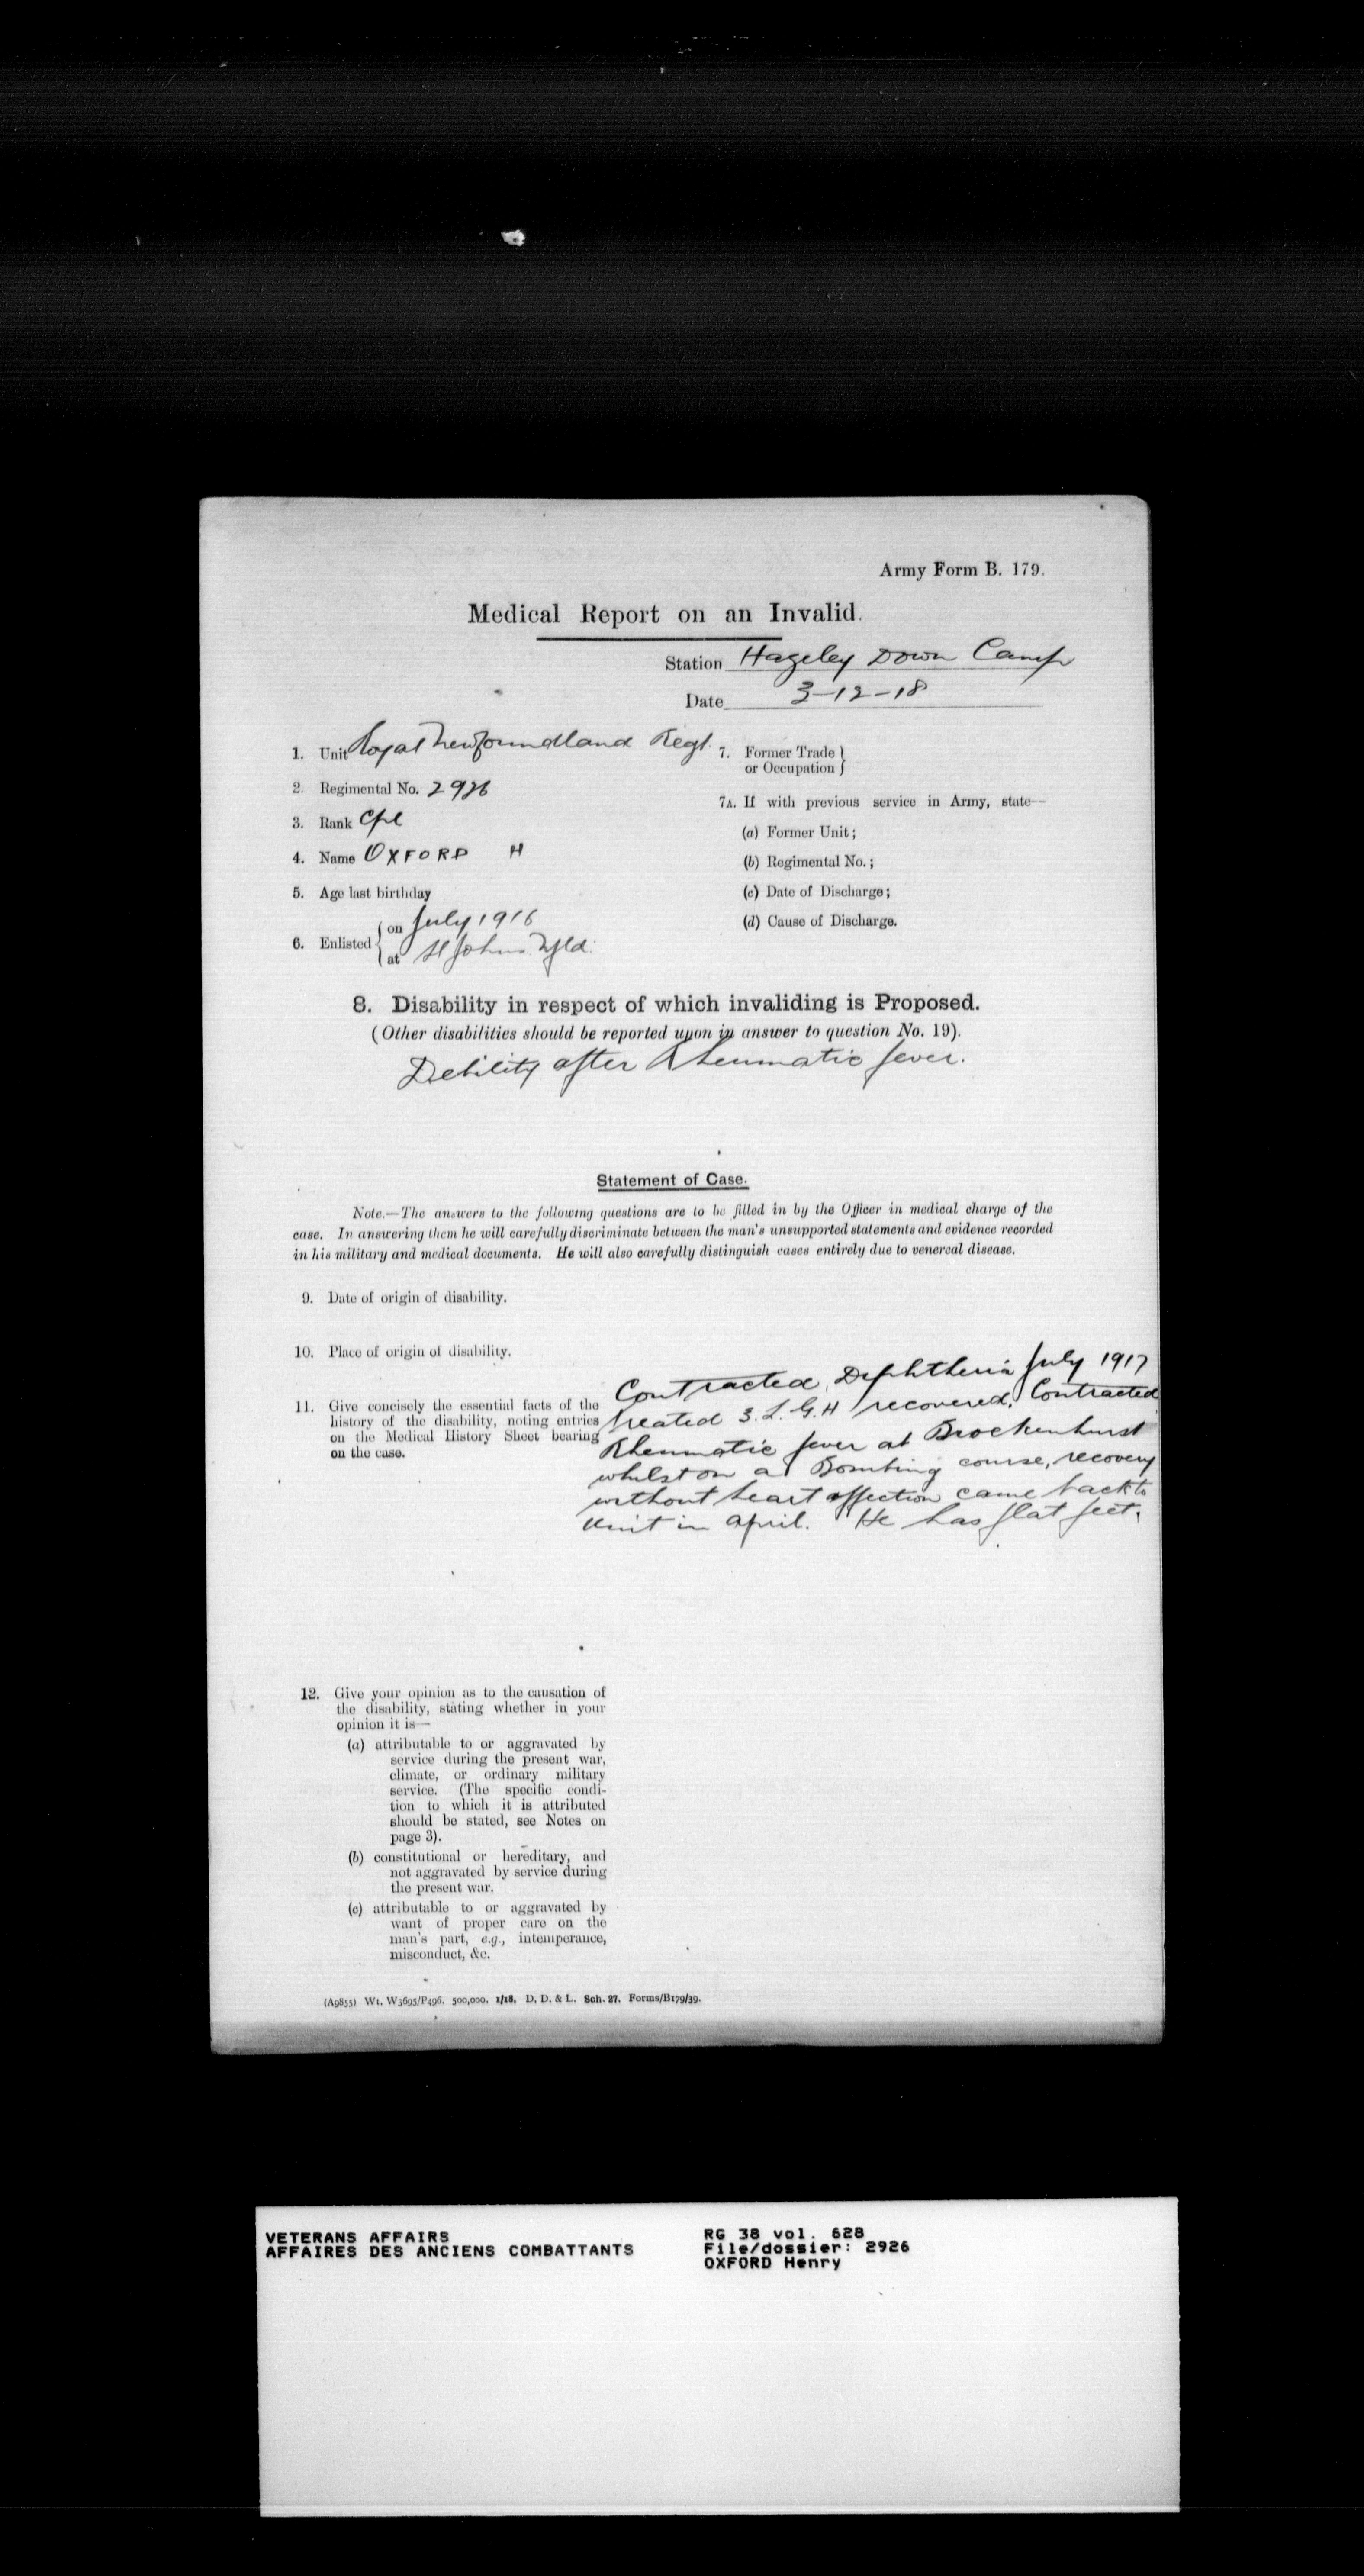 Army Form B. 179.
Medical Report on an Invalid.
Station Hazeley Down Camp
Date 3-12-18
1. Unit Royal Newfoundland Regt.
2. Regimental No. 2926
3. Rank Cpl
4. Name OXFORD H
5. Age last birthday
6. Enlisted { on July 1916
at St Johns Nfld.
7. Former Trade }
or Occupation }
7A. If with previous service in Army, state—
(a) Former Unit;
(b) Regimental No.;
(c) Date of Discharge;
(d) Cause of Discharge.
8. Disability in respect of which invaliding is Proposed.
(Other disabilities should be reported upon in answer to question No. 19).
Debility after Rheumatic fever.
Statement of Case.
Note.—The answers to the following questions are to be filled in by the Officer in medical charge of the
case. In answering them he will carefully discriminate between the man's unsupported statements and evidence recorded
in his military and medical documents. He will also carefully distinguish cases entirely due to venereal disease.
9. Date of origin of disability.
10. Place of origin of disability.
11. Give concisely the essential facts of the
history of the disability, noting entries
on the Medical History Sheet bearing
on the case.
Contracted Diphtheria July 1917
treated 3. L. G. H recovered. Contracted
Rheumatic fever at Brockenhurst
whilst on a Bombing course, recovery
without heart affection came back to
Unit in April. He has flat feet.
12. Give your opinion as to the causation of
the disability, stating whether in your
opinion it is—
(a) attributable to or aggravated by
service during the present war,
climate, or ordinary military
service. (The specific condi-
tion to which it is attributed
should be stated, see Notes on
page 3).
(b) constitutional or hereditary, and
not aggravated by service during
the present war.
(c) attributable to or aggravated by
want of proper care on the
man's part, e.g., intemperance,
misconduct, &c.
(A9855) Wt. W3695/P496. 500,000. 1/18. D. D. & L. Sch. 27. Forms/B179/39.
VETERANS AFFAIRS
AFFAIRES DES ANCIENS COMBATTANTS
RG 38 vol. 628
File/dossier: 2926
OXFORD Henry